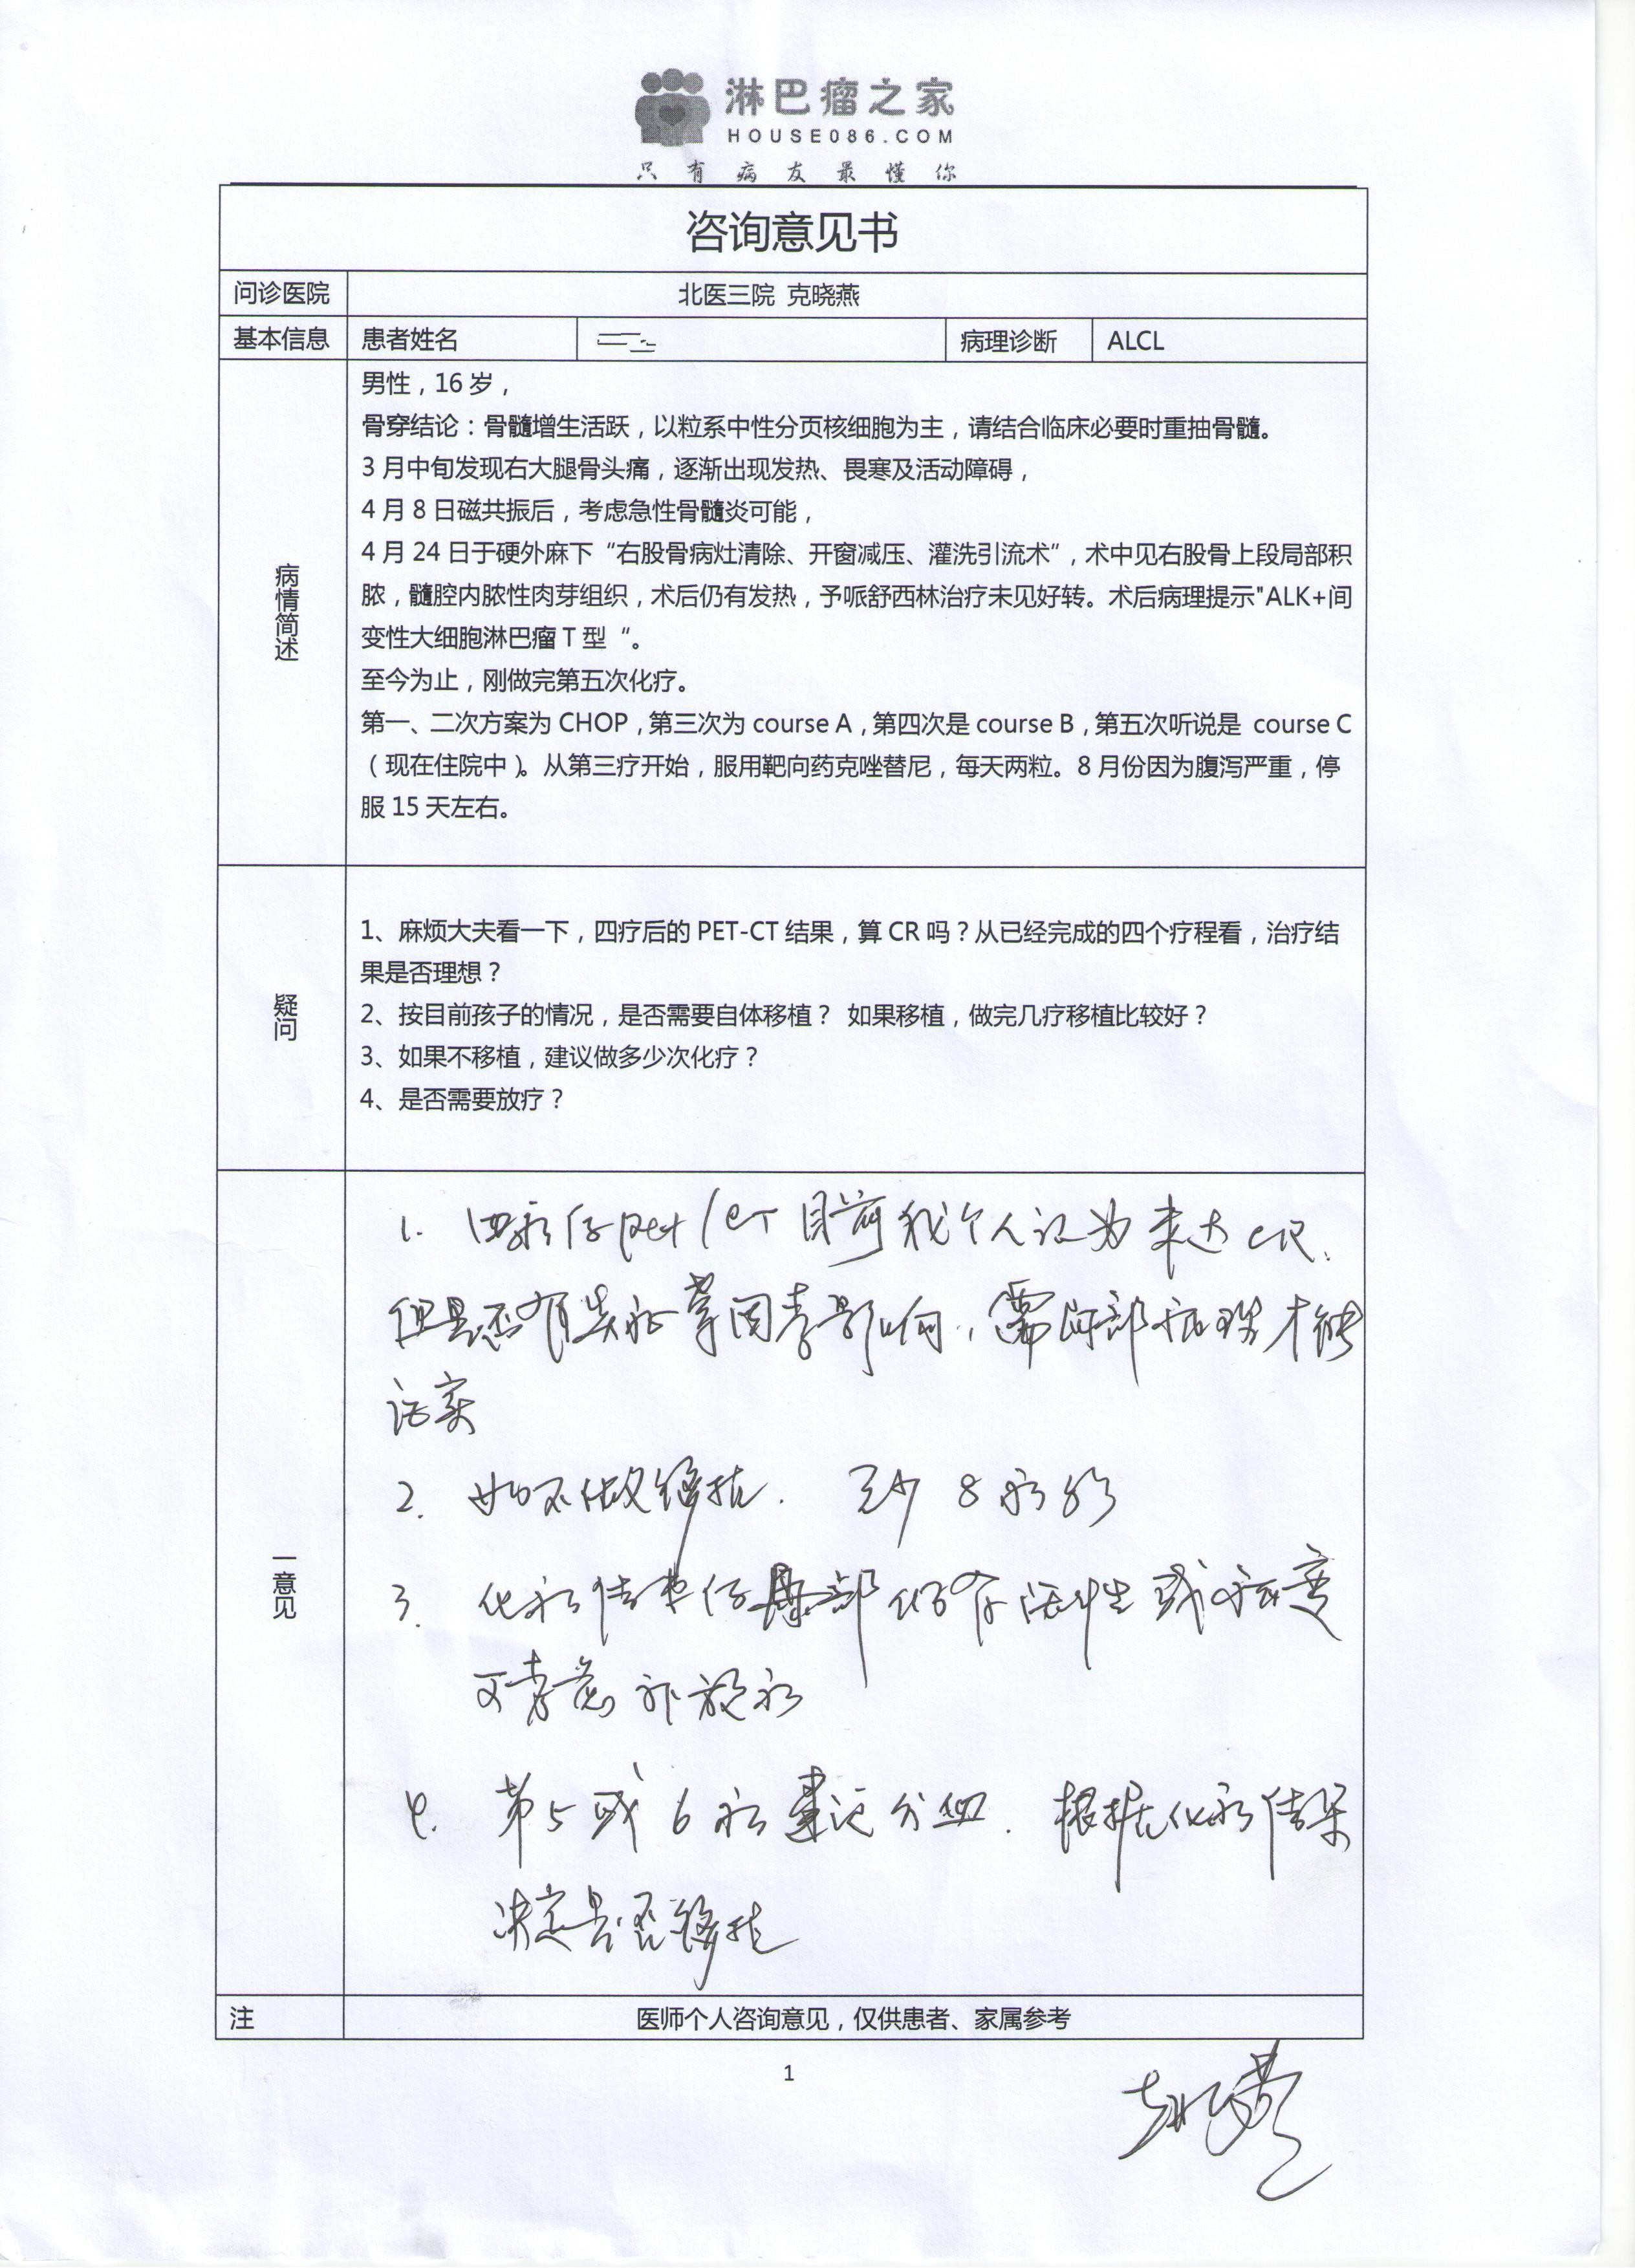 淋巴瘤之家
HOUSE086.COM
只有病友最懂你
咨询意见书
问诊医院 北医三院 克晓燕
基本信息 患者姓名 病理诊断 ALCL
病情简述
男性，16 岁，
骨穿结论：骨髓增生活跃，以粒系中性分页核细胞为主，请结合临床必要时重抽骨髓。
3 月中旬发现右大腿骨头痛，逐渐出现发热、畏寒及活动障碍，
4 月 8 日磁共振后，考虑急性骨髓炎可能，
4 月 24 日于硬外麻下“右股骨病灶清除、开窗减压、灌洗引流术”，术中见右股骨上段局部积
脓，髓腔内脓性肉芽组织，术后仍有发热，予哌舒西林治疗未见好转。术后病理提示"ALK+间
变性大细胞淋巴瘤 T 型“。
至今为止，刚做完第五次化疗。
第一、二次方案为 CHOP，第三次为 course A，第四次是 course B，第五次听说是 course C
（现在住院中）。从第三疗开始，服用靶向药克唑替尼，每天两粒。8 月份因为腹泻严重，停
服 15 天左右。
疑问
1、麻烦大夫看一下，四疗后的 PET-CT 结果，算 CR 吗？从已经完成的四个疗程看，治疗结
果是否理想？
2、按目前孩子的情况，是否需要自体移植？ 如果移植，做完几疗移植比较好？
3、如果不移植，建议做多少次化疗？
4、是否需要放疗？
一意见
1. 四疗后 pet/CT 目前我个人认为未达 CR.
但是否有炎症等因素影响，需局部病理才能
证实
2. 如不做移植. 至少 8 疗
3. 化疗结束后局部仍存活性或病变
可考虑补放疗
4. 第 5 或 6 疗建议分血. 根据化疗结果
决定是否移植
注 医师个人咨询意见，仅供患者、家属参考
1